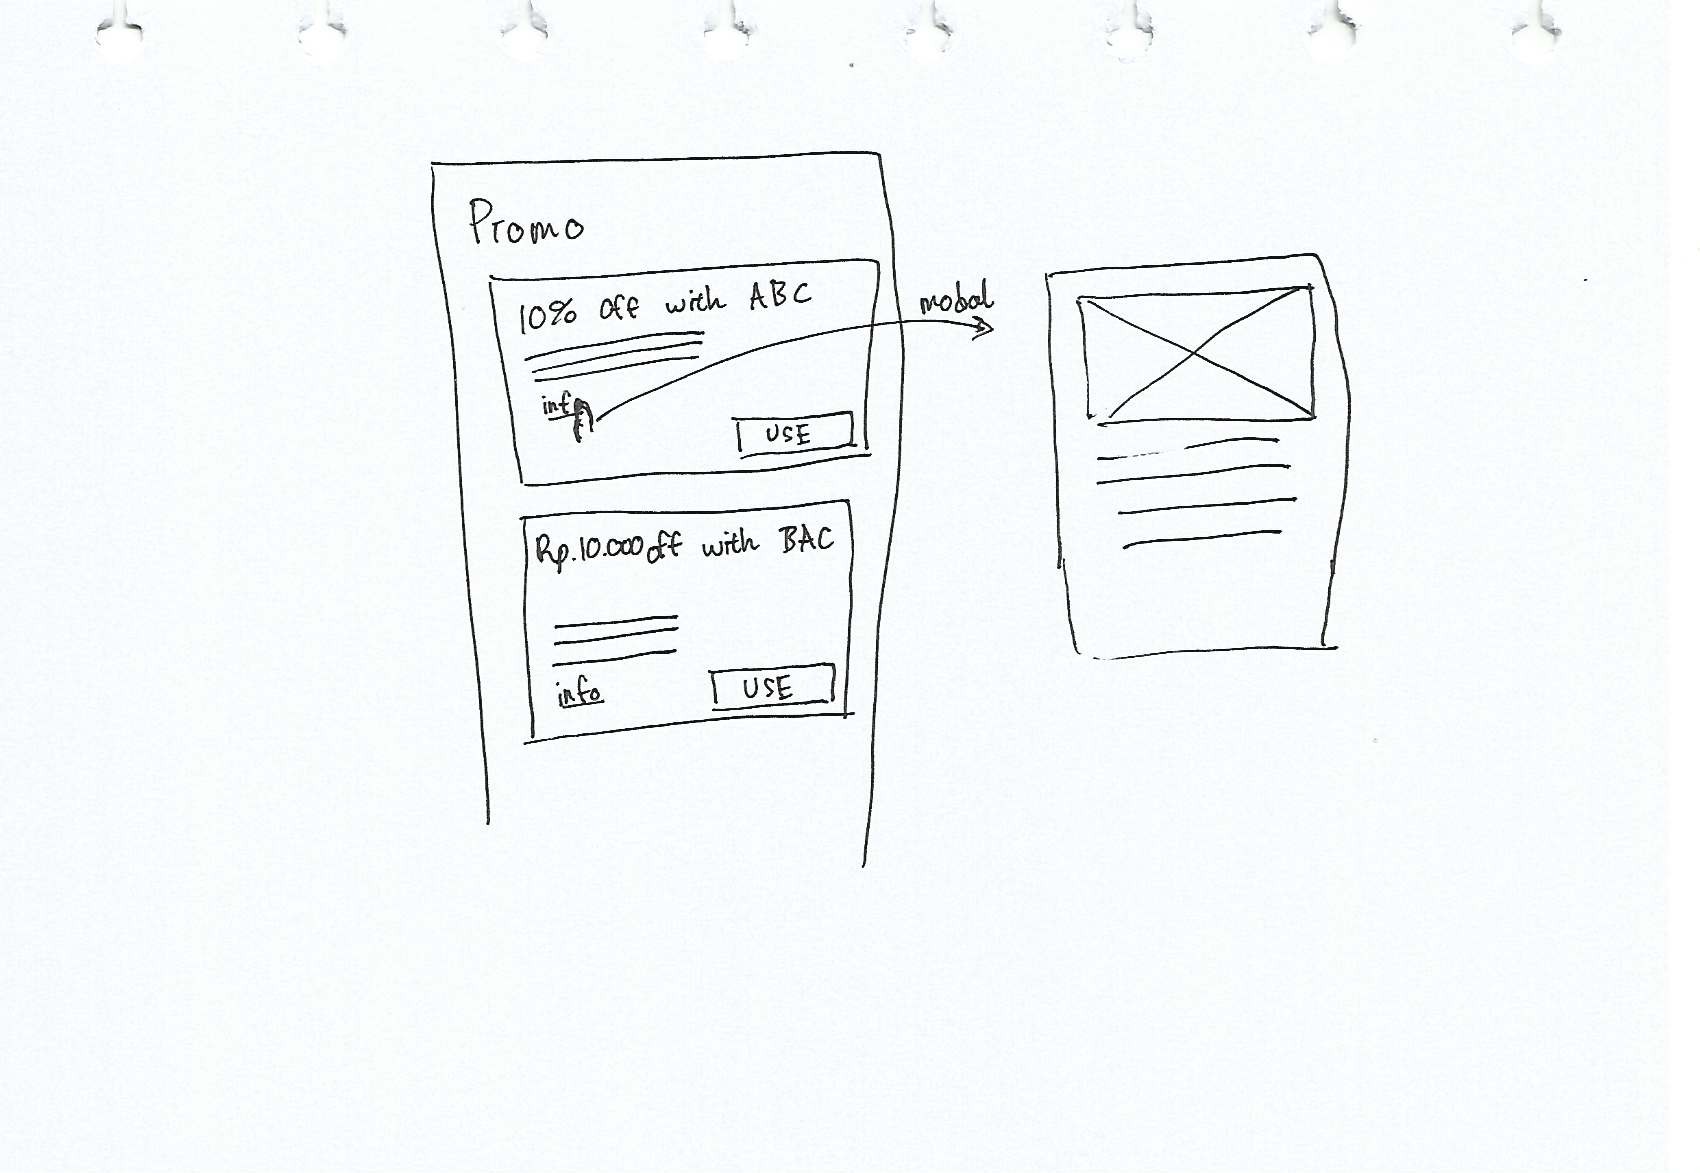 Promo
10% off with ABC
modal
info
USE
Rp.10.000 off with BAC
info
USE